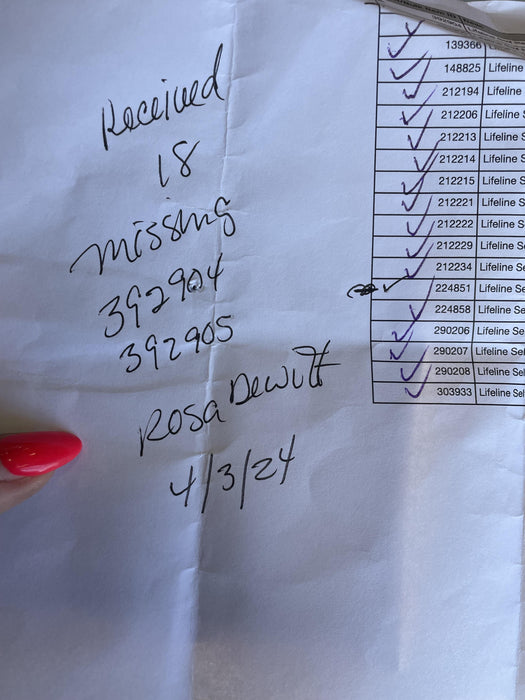 Received
18
missing
392904
392905
Rosa Dewitt
4/3/24
139366
148825 Lifeline
212194 Lifeline
212206 Lifeline S
212213 Lifeline S
212214 Lifeline S
212215 Lifeline S
212221 Lifeline S
212222 Lifeline S
212229 Lifeline Se
212234 Lifeline Se
224851 Lifeline Se
224858 Lifeline Se
290206 Lifeline Se
290207 Lifeline Sel
290208 Lifeline Sel
303933 Lifeline Sel